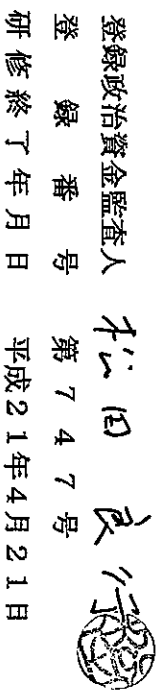 登録政治資金監査人 松田 良
登録番号 第747号
研修終了年月日 平成21年4月21日